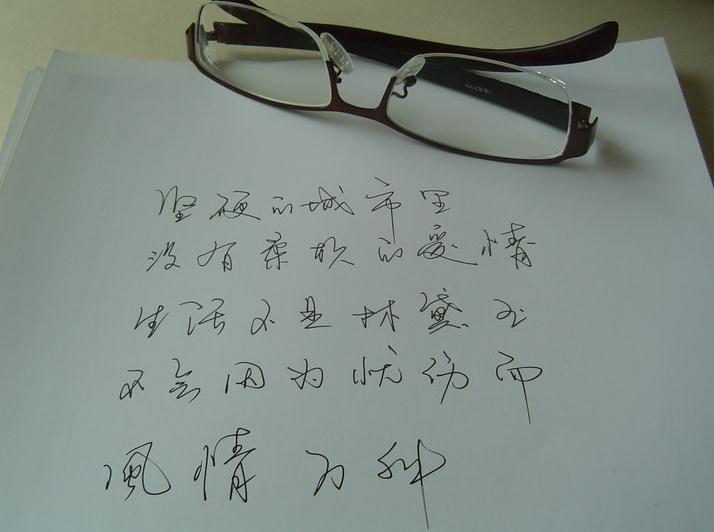 坚硬的城市里
没有柔软的爱情
生活不是林黛玉
不会因为忧伤而
风情万种